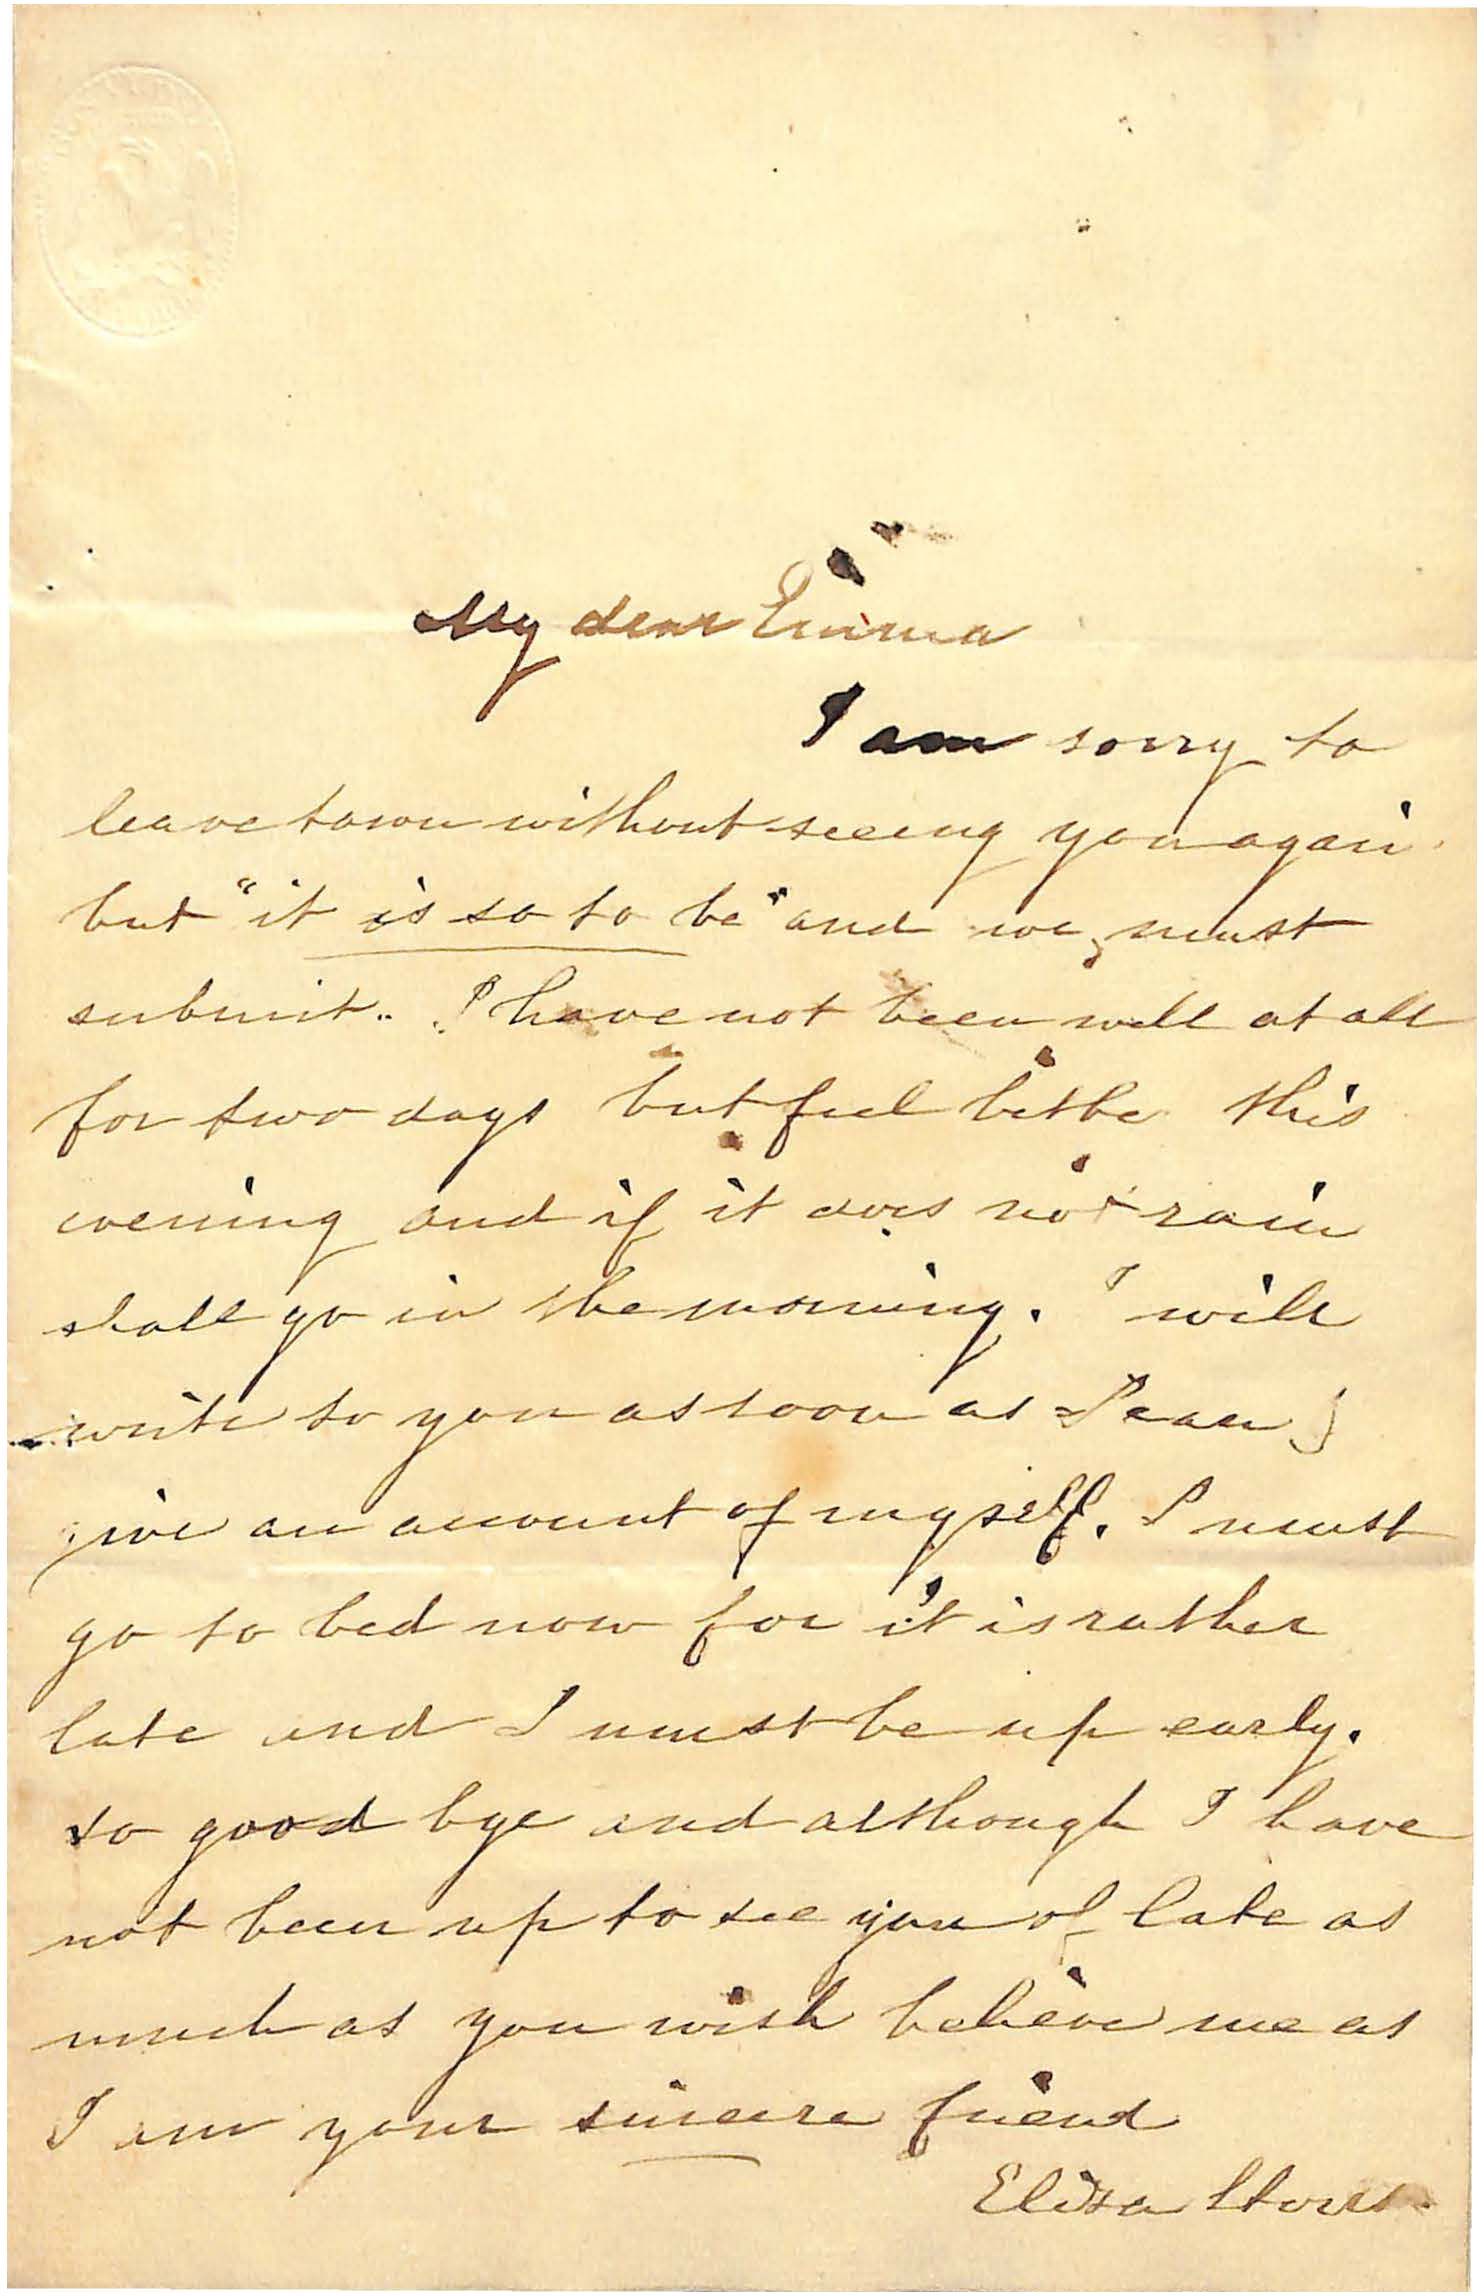 My dear Emma
I am sorry to
leave town without seeing you again
but "it is so to be" and we must
submit.. I have not been well at all
for two days but feel bette this
evening and if it does not rain
shall go in the morning. I will
write to you as soon as I can
give an account of myself. I must
go to bed now for it is rather
late and I must be up early.
so good bye and although I have
not been up to see you of late as
much as you wish believe me as
I am your sincere friend
Eliza